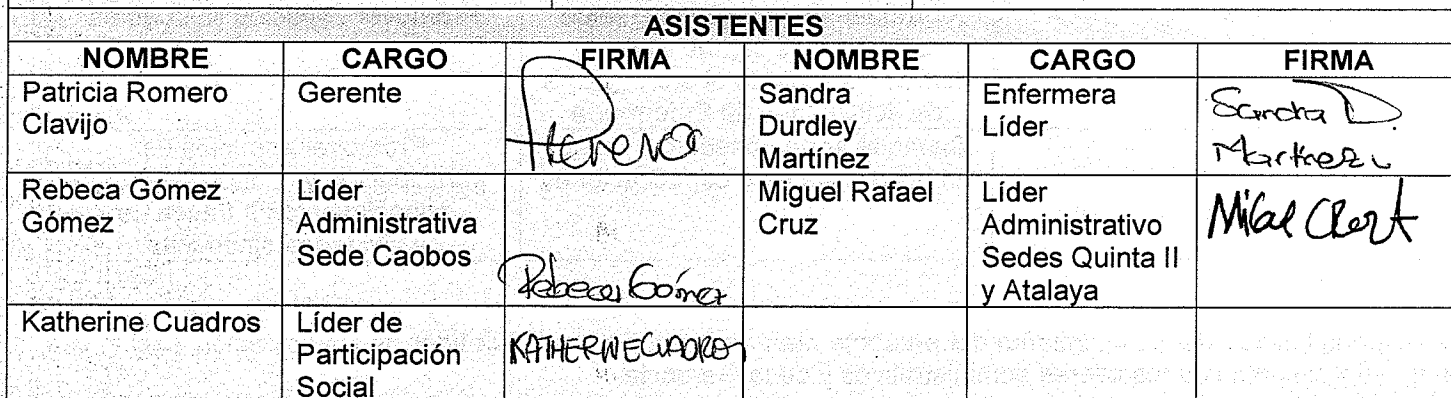 ASISTENTES
NOMBRE CARGO FIRMA NOMBRE CARGO FIRMA
Patricia Romero
Clavijo
Gerente
Sandra
Durdley
Martínez
Enfermera
Líder
Sandra D.
Martínez
Rebeca Gómez
Gómez
Líder
Administrativa
Sede Caobos
Rebeca Gómez
Miguel Rafael
Cruz
Líder
Administrativo
Sedes Quinta II
y Atalaya
Katherine Cuadros
Líder de
Participación
Social
KATHERINE CUADROS